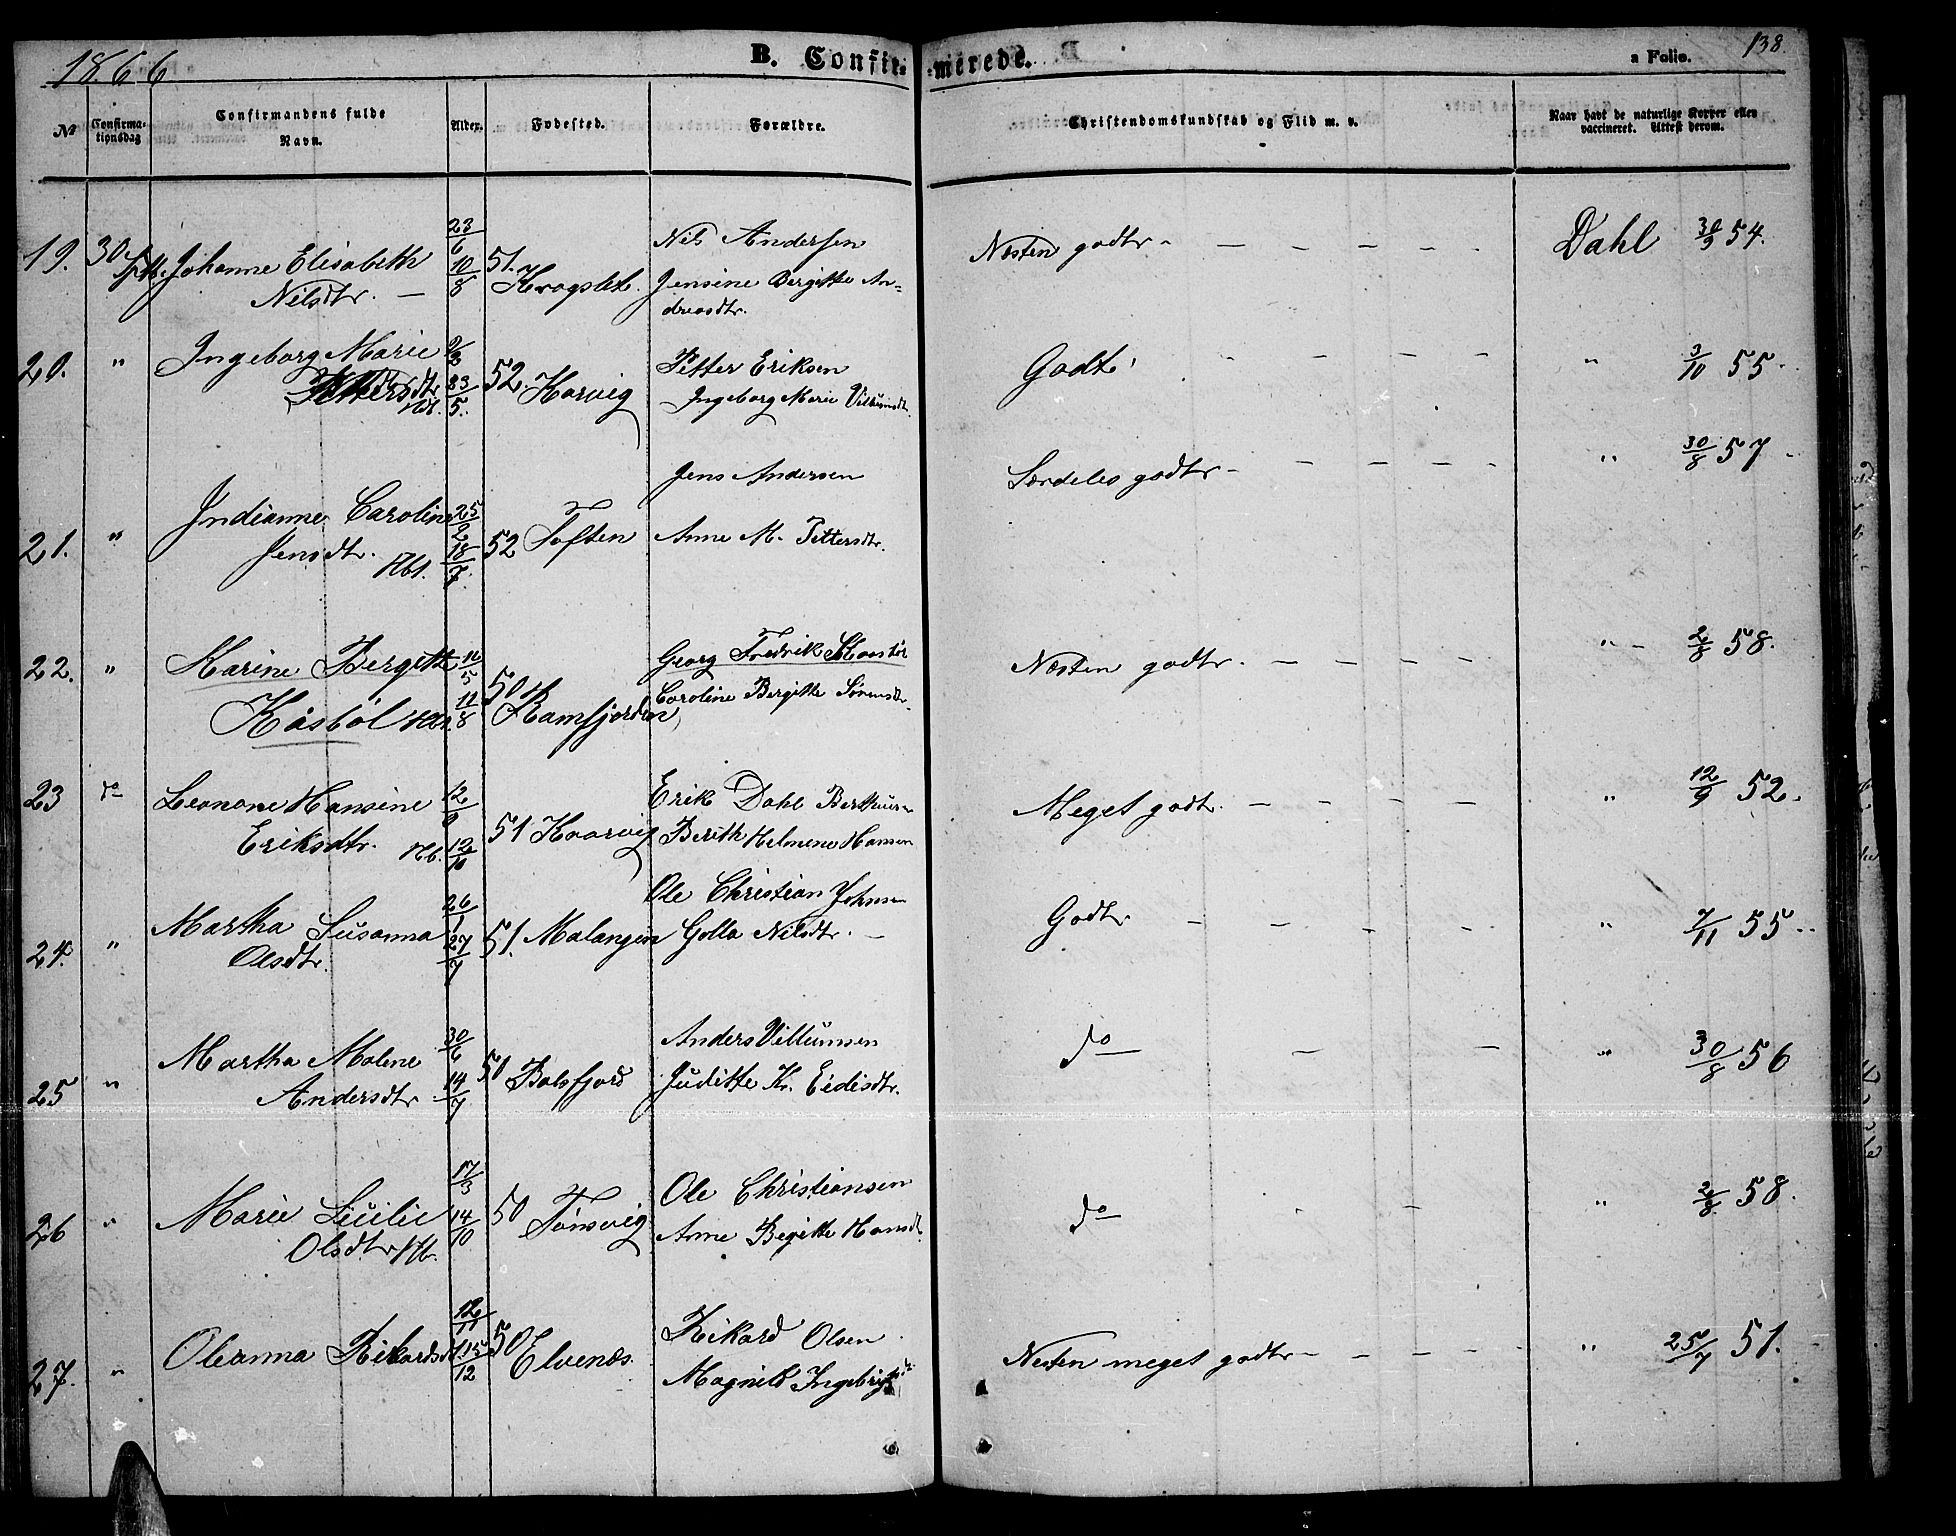 1866
B. Confir-
-merede.
a Folio. 138
No
Confirma-
tionsdag
Confirmandens fulde
Navn.
Alder.
Fødested.
Forældre.
Christendomskundskab og Flid m. v.
Naar havt de naturlige Kopper eller
vaccineret. Attest derom.
19. 30 Sptb. Johanne Elisabeth
Nilsdtr. —
23/6 10/8 51.
Kragslet.
Nils Andersen
Jensine Bergitte An=
dreasdtr.
Næsten godtr - — — — — —
Dahl 30/9 54.
20. " Ingeborg Marie
Pettersdtr
2/2 23/5. 52. Korvig
Petter Eriksen
Ingeborg Marie Villumsdtr.
Godt
" 3/10 55.
21. " Indianne Caroline
Jensdtr. Hbl.
25/2 18/7. 52 Toften
Jens Andersen
Anne M. Pettersdtr.
Særdeles godtr -
" 30/8 57
22. " Karine Bergitte
Kåsböl
11/5 11/8 50 Ramfjorden
Georg Fredrik
Caroline Bergitte Sörensdtr.
Næsten godtr. — — — — —
" 2/8 58.
23 do Leonore Hansine
Eriksdtr. Hb.
12/9 12/10 51 Kaarvig
Erik Dahl
Berith Helmene Hansen
Meget godt. — — — — —
" 12/9 52.
24. " Martha Susanna
Olsdtr.
26/1 27/7 51. Malangen
Ole Christian Johnsen
Golla Nilsdtr. —
Godtr
" 7/11 55.
25 " Martha Malene
Andersdtr
30/6 14/7 51 Balsfjord
Anders Villumsen
Juditte Kr. Eidisdtr.
do
" 30/8 56
26 " Marie Lucilie
Olsdtr Hb.
17/3 14/10 50 Tønsvig
Ole Christiansen
Anne Begitte Hansdtr.
do
" 2/8 58.
27. " Oleanna Rikardsdtr
12/11 15/12 50 Elvenæs.
Rikard Olsen
Magnild
Næsten meget godtr — — — — —
" 25/7 51.